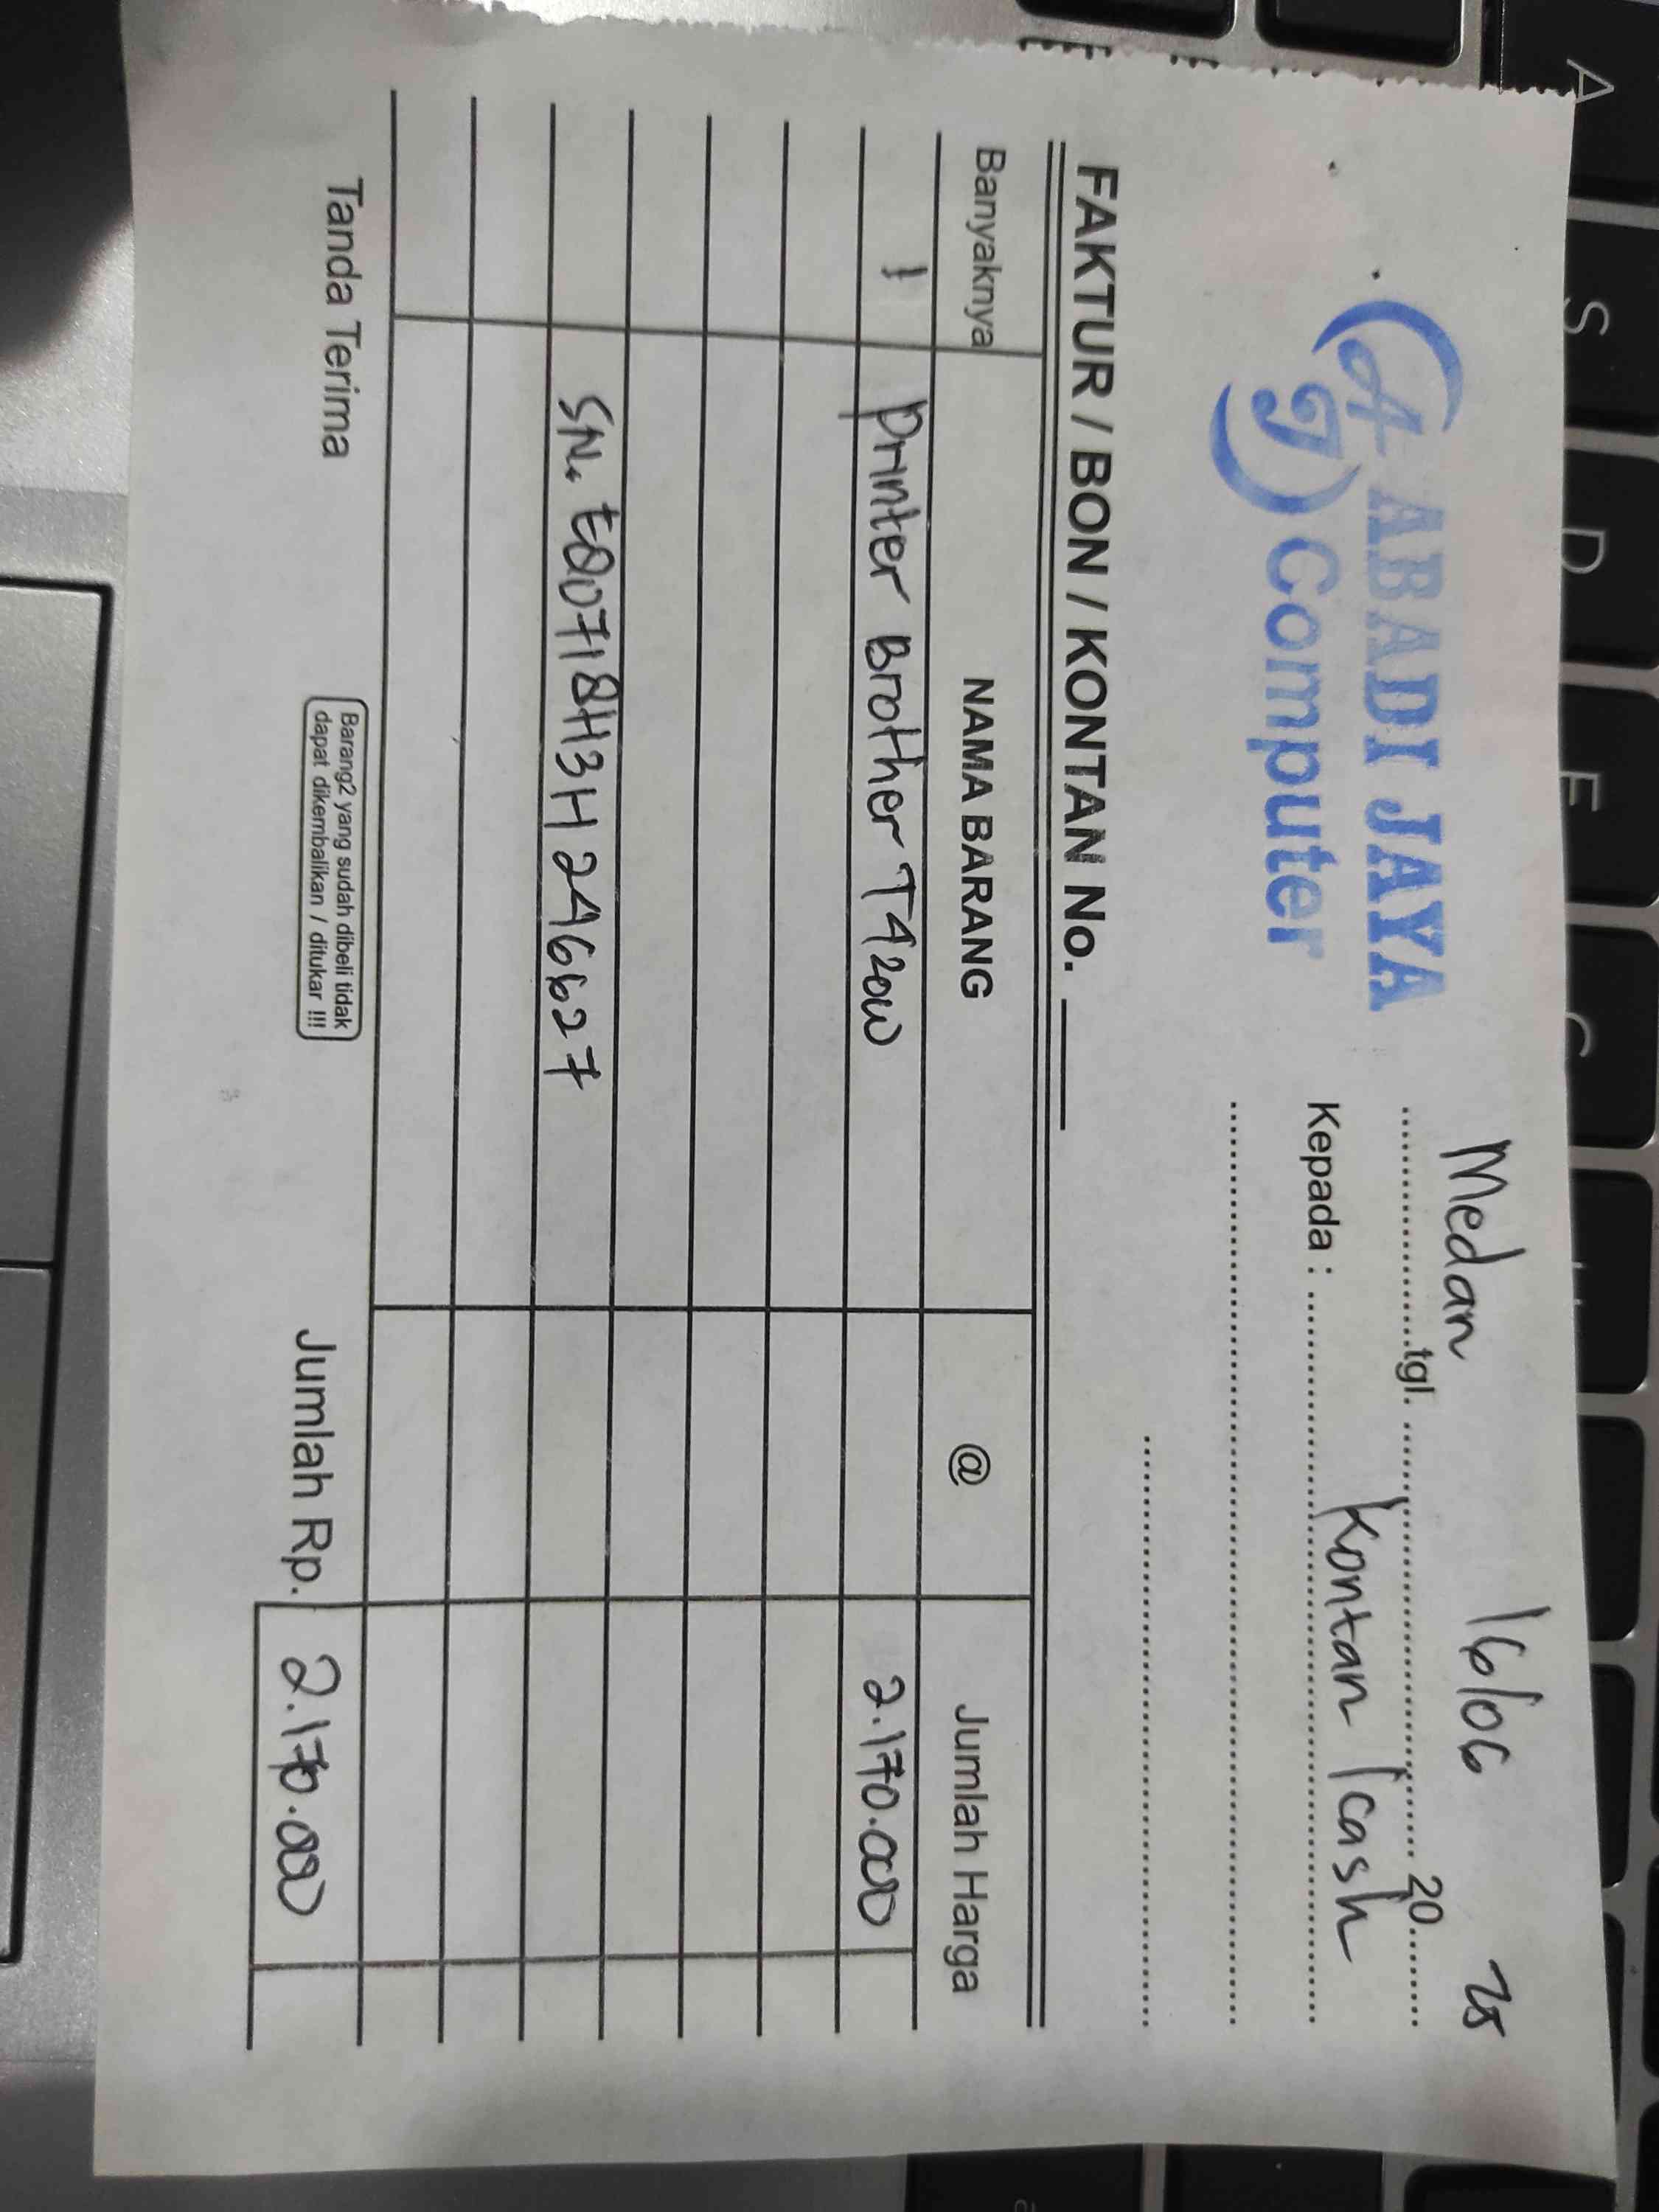 ABADI JAYA
AJ Computer
Medan tgl. 16/06 20 25
Kepada : Kontan / cash
FAKTUR / BON / KONTAN No.
Banyaknya NAMA BARANG @ Jumlah Harga
1 Printer Brother T420W 2.170.000
SN. E80718H3H246627
Tanda Terima
Barang2 yang sudah dibeli tidak
dapat dikembalikan / ditukar !!!
Jumlah Rp. 2.170.000
A
S
D
F
G